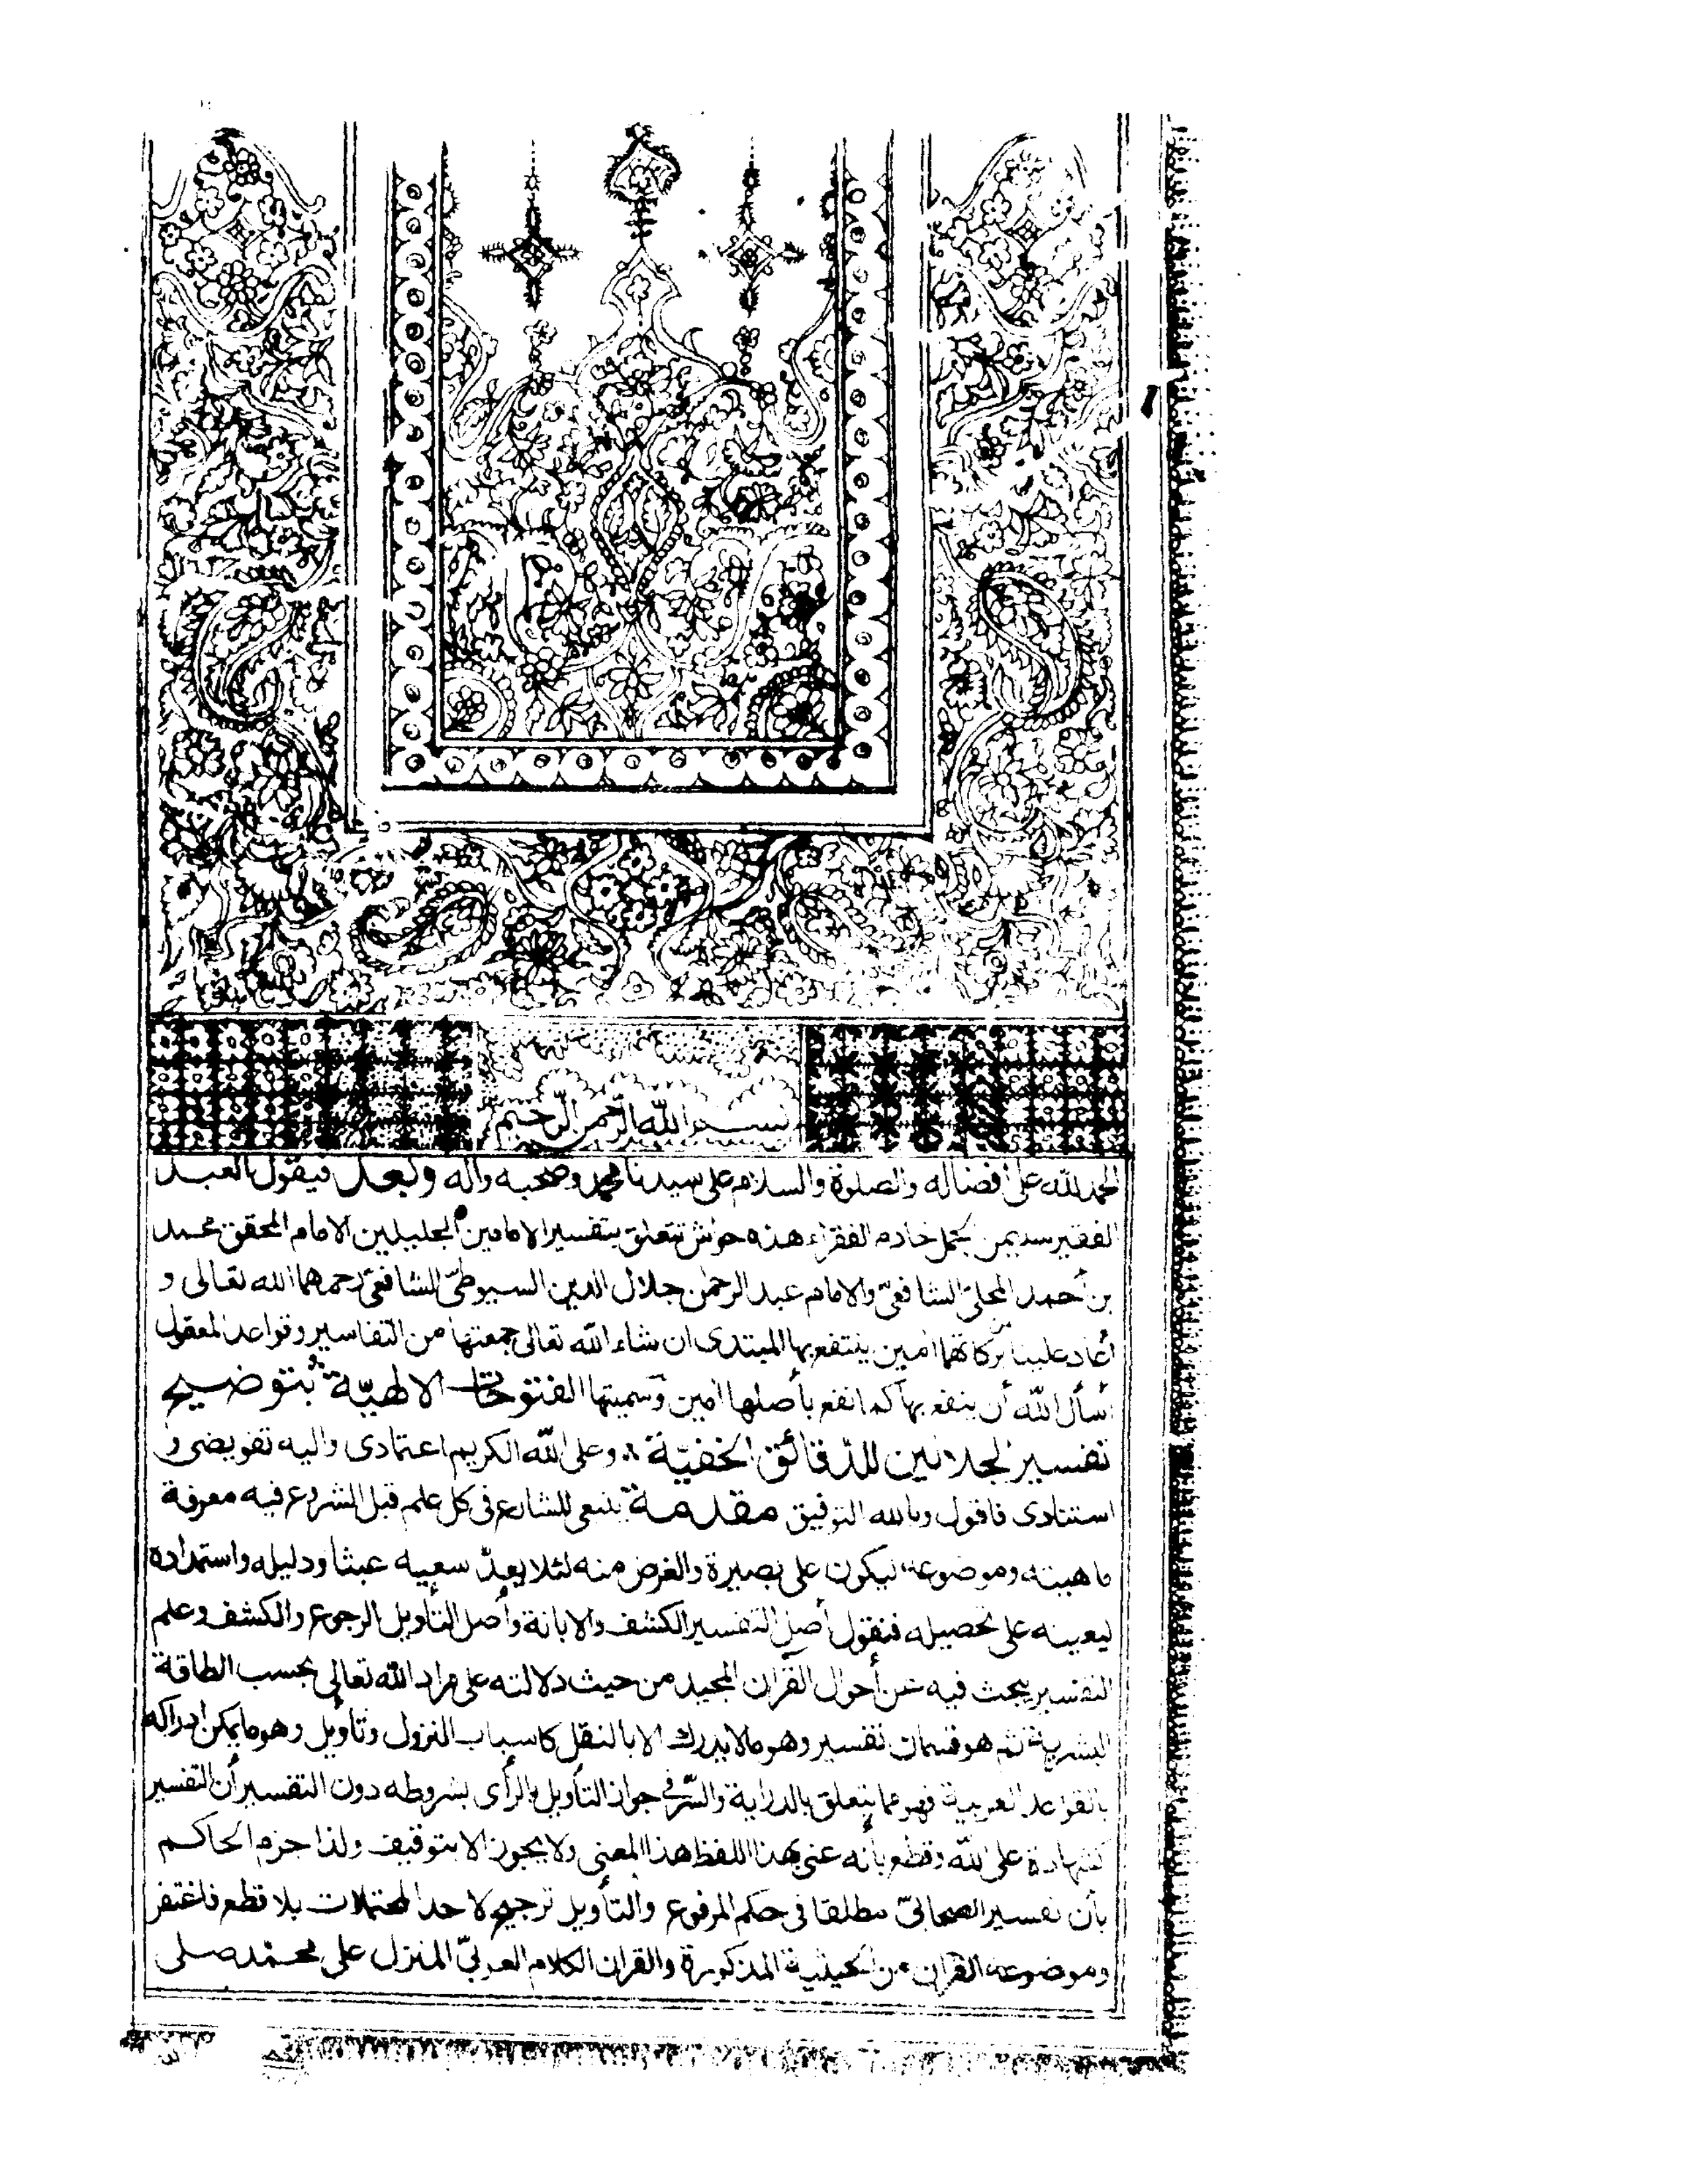 بسم الله الرحمن الرحيم
الحمد لله على افضاله والصلوة والسلام على سيدنا محمد وصحبه وآله وبعد فيقول العبد
الفقير سليمن الجمل خادم الفقراء هذه حواش تتعلق بتفسير الامامين الجليلين الامام المحقق محمد
بن أحمد المحلىّ الشافعىّ والامام عبد الرحمن جلال الدين السيوطىّ الشافعىّ رحمهما الله تعالى و
أعاد علينا من بركاتهما امين ينتفع بها المبتدى ان شاء الله تعالى جمعتها من التفاسير وقواعد المعقول
أسأل الله أن ينفع بها كما نفع بأصلها امين وسميتها الفتوحات الالهيّة بتوضيح
تفسير الجلالين للدّقائق الخفيّة وعلى الله الكريم اعتمادى واليه تفويضى و
استنادى فاقول وبالله التوفيق مقدمة ينبغى للشارع فى كل علم قبل الشروع فيه معرفة
ماهيته وموضوعه ليكون على بصيرة والغرض منه لئلا يعدّ سعيه عبثا ودليله واستمداده
ليعينه على تحصيله فنقول أصل التفسير الكشف والابانة وأصل التأويل الرجوع والكشف وعلم
التفسير يبحث فيه عن أحوال القرآن المجيد من حيث دلالته على مراد الله تعالى بحسب الطاقة
البشرية ثم هو قسمان تفسير وهو ما لا يدرك الا بالنقل كاسباب النزول وتأويل وهو ما يمكن ادراكه
بالقواعد العربية فهو مما يتعلق بالدراية والسّر فى جواز التأويل بالرأى بشروطه دون التفسير أن التفسير
كشهادة على الله وقطع بأنه عنى بهذا اللفظ هذا المعنى ولا يجوز الا بتوقيف ولذا جزم الحاكم
بأن تفسير الصحابىّ مطلقا فى حكم المرفوع والتأويل ترجيح لاحد المحتملات بلا قطع فاغتفر
وموضوعه القران من الحيثية المذكورة والقران الكلام العربىّ المنزل على محمد صلى